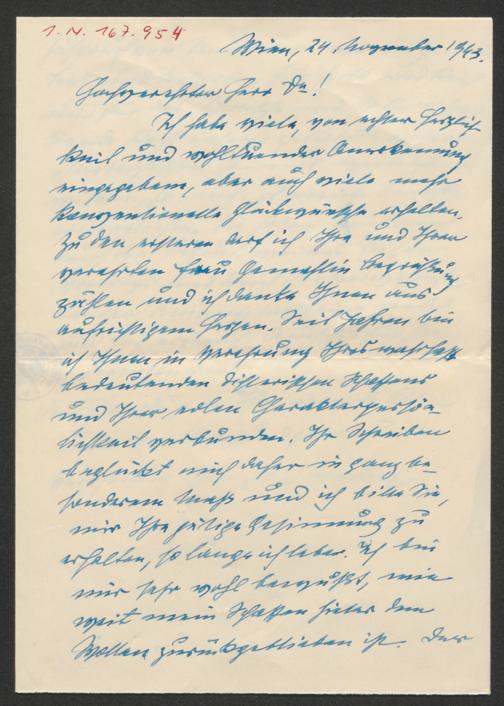 I.N. 167.954
Wien, 24 November 1943.
Hochverehrter Herr Dr!
Ich habe viele, von echter Herzlich-
keit und wohltuender Anerkennung
eingegebene, aber auch viele mehr
konventionelle Glückwünsche erhalten.
Zu den ersteren darf ich Ihre und Ihrer
verehrten Frau Gemahlin Begrüßung
zählen und ich danke Ihnen aus
aufrichtigem Herzen. Seit Jahren bin
ich Ihnen in Verehrung Ihres wahrhaft
bedeutenden dichterischen Schaffens
und Ihrer edlen Charakterpersön-
lichkeit verbunden. Ihr Schreiben
beglückt mich daher in ganz be-
sonderem Maß und ich bitte Sie,
mir Ihre gütige Gesinnung zu
erhalten, so lange ich lebe. Ich bin
mir sehr wohl bewußt, wie
weit mein Schaffen hinter dem
Wollen zurückgeblieben ist. Der